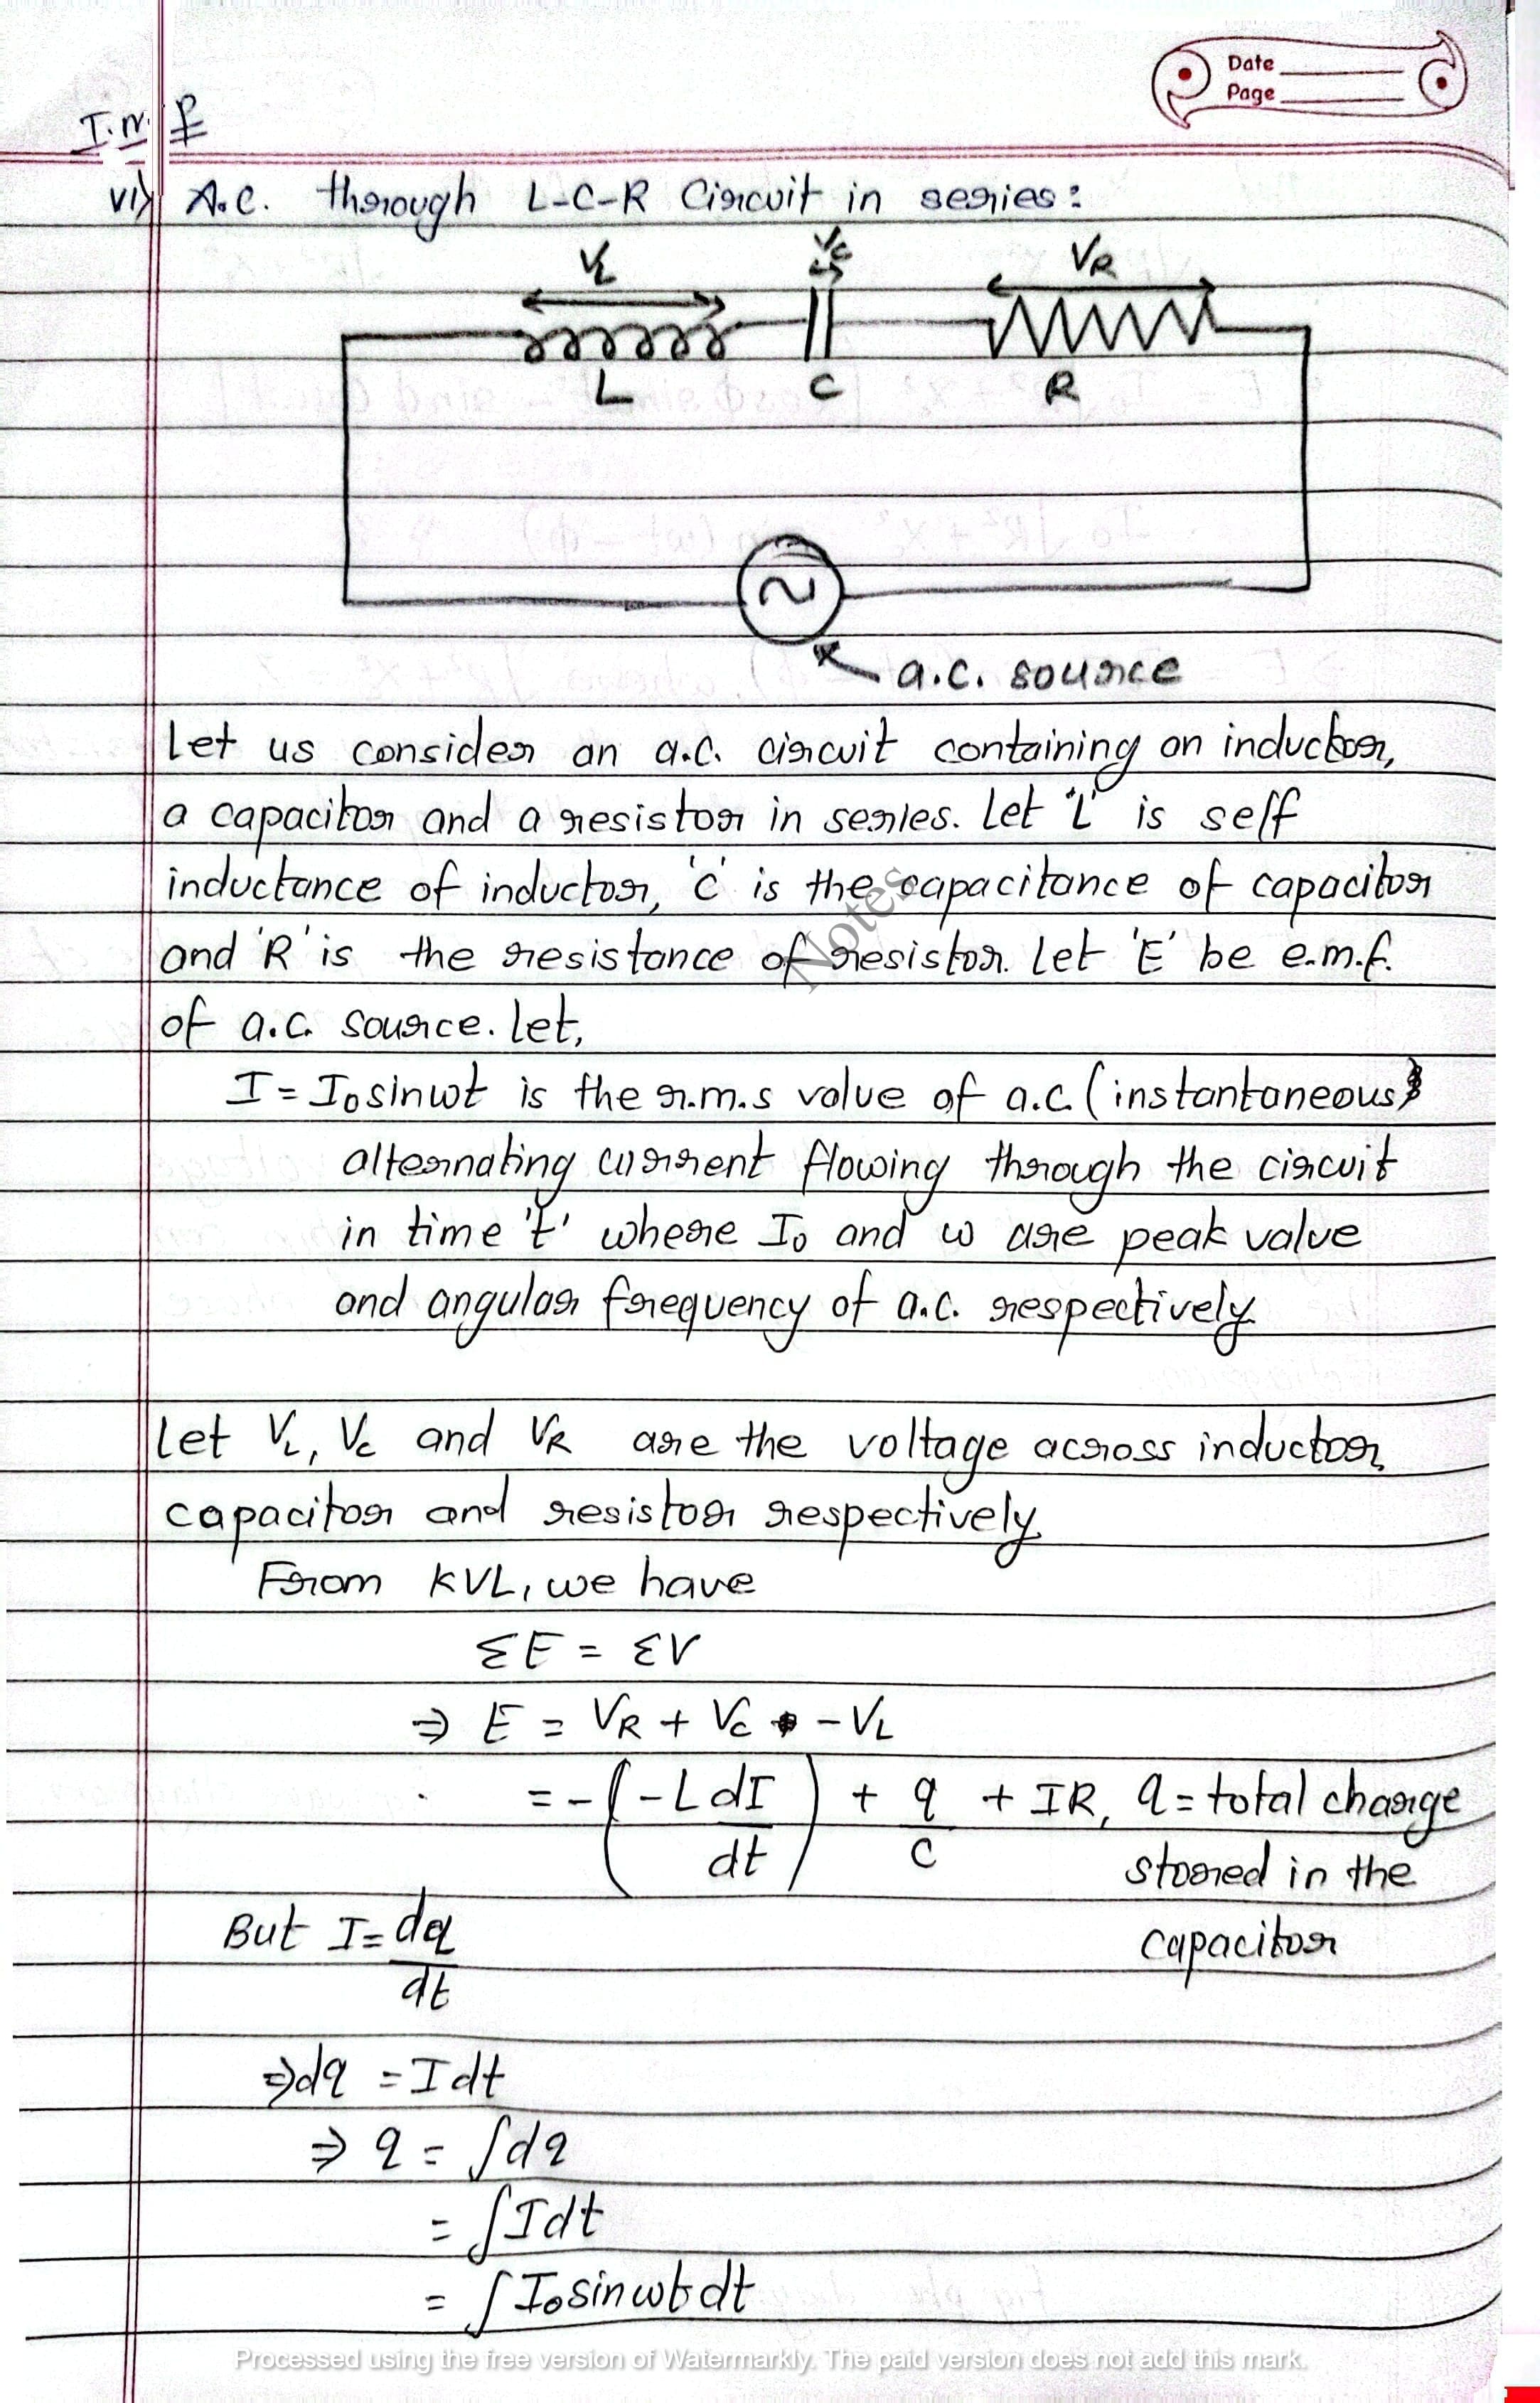 Date
Page
I.m.p
vi) A.C. through L-C-R Circuit in series:
VL
Vc
VR
L
C
R
~
a.c. source
Let us consider an a.c. circuit containing an inductor,
a capacitor and a resistor in series. Let 'L' is self
inductance of inductor, 'C' is the capacitance of capacitor
and 'R' is the resistance of resistor. Let 'E' be e.m.f.
of a.c. source. Let,
I = I₀sinωt is the r.m.s value of a.c. (instantaneous)
alternating current flowing through the circuit
in time 't' where I₀ and ω are peak value
and angular frequency of a.c. respectively.
Let VL, Vc and VR are the voltage across inductor,
capacitor and resistor respectively.
From KVL, we have
ΣE = ΣV
⇒ E = VR + Vc - VL
= -(-L dI/dt) + q/C + IR, q = total charge
stored in the
capacitor
But I = dq/dt
⇒ dq = Idt
⇒ q = ∫dq
= ∫Idt
= ∫I₀sinωt dt
Notes
Processed using the free version of Watermarkly. The paid version does not add this mark.